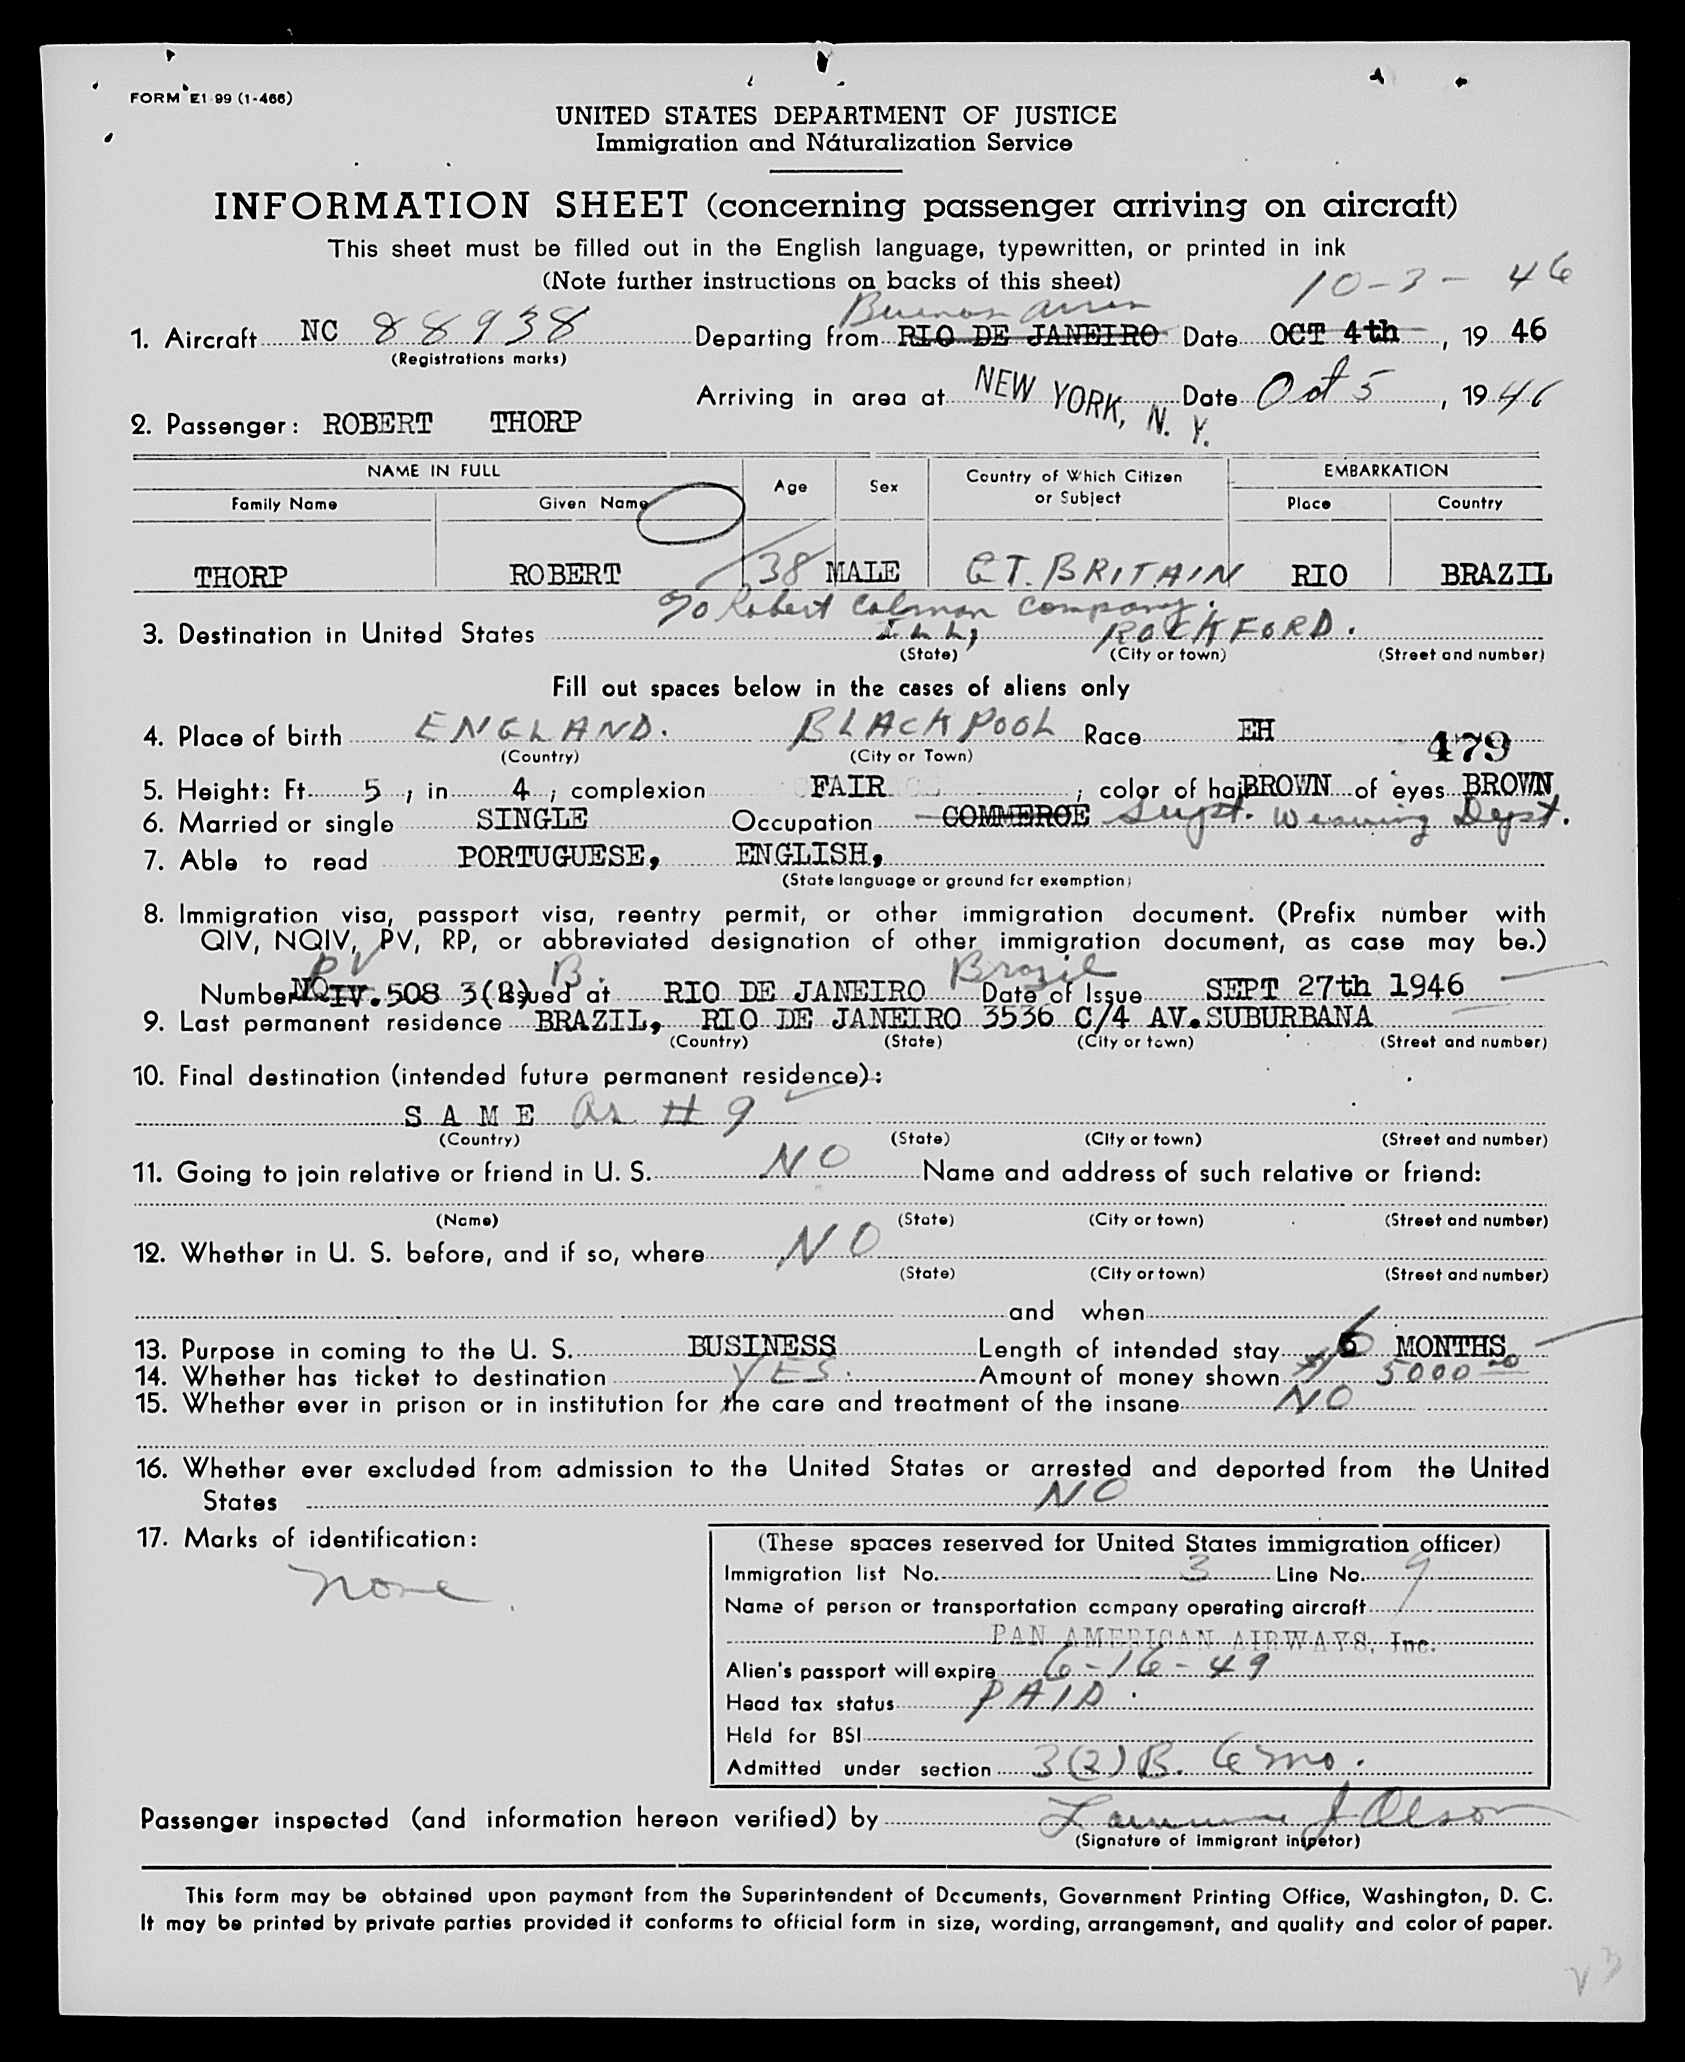 FORM E1-99 (1-466)
UNITED STATES DEPARTMENT OF JUSTICE
Immigration and Naturalization Service
INFORMATION SHEET (concerning passenger arriving on aircraft)
This sheet must be filled out in the English language, typewritten, or printed in ink
(Note further instructions on backs of this sheet)
10-3-46
Buenos Aires
1. Aircraft NC 88938 Departing from RIO DE JANEIRO Date OCT 4th, 19 46
(Registrations marks)
Arriving in area at NEW YORK, N. Y. Date Oct 5, 19 46
2. Passenger: ROBERT THORP
NAME IN FULL Age Sex Country of Which Citizen or Subject EMBARKATION
Family Name Given Name Place Country
THORP ROBERT 38 MALE GT. BRITAIN RIO BRAZIL
c/o Robert Colman Company.
3. Destination in United States ILL, ROCKFORD.
(State) (City or town) (Street and number)
Fill out spaces below in the cases of aliens only
4. Place of birth ENGLAND. BLACKPOOL Race EH
(Country) (City or Town)
479
5. Height: Ft. 5, in 4; complexion FAIR; color of hai BROWN of eyes BROWN
6. Married or single SINGLE Occupation COMMERCE Supt. Weaving Dept.
7. Able to read PORTUGUESE, ENGLISH,
(State language or ground for exemption)
8. Immigration visa, passport visa, reentry permit, or other immigration document. (Prefix number with
QIV, NQIV, PV, RP, or abbreviated designation of other immigration document, as case may be.)
PV B. Brazil
Number NQIV. 508 3(2) Issued at RIO DE JANEIRO Date of Issue SEPT 27th 1946
9. Last permanent residence BRAZIL, RIO DE JANEIRO 3536 C/4 AV. SUBURBANA
(Country) (State) (City or town) (Street and number)
10. Final destination (intended future permanent residence):
S A M E as # 9
(Country) (State) (City or town) (Street and number)
11. Going to join relative or friend in U. S. NO Name and address of such relative or friend:
(Name) (State) (City or town) (Street and number)
12. Whether in U. S. before, and if so, where NO
(State) (City or town) (Street and number)
and when
13. Purpose in coming to the U. S. BUSINESS Length of intended stay 6 MONTHS
14. Whether has ticket to destination YES. Amount of money shown $ 5000 00
15. Whether ever in prison or in institution for the care and treatment of the insane NO
16. Whether ever excluded from admission to the United States or arrested and deported from the United
States NO
17. Marks of identification:
None
(These spaces reserved for United States immigration officer)
Immigration list No. 3 Line No. 9
Name of person or transportation company operating aircraft
PAN AMERICAN AIRWAYS, Inc.
Alien's passport will expire 6-16-49
Head tax status PAID.
Held for BSI
Admitted under section 3(2)B. 6 mo.
Passenger inspected (and information hereon verified) by Lawrence J Olson
(Signature of immigrant inspetor)
This form may be obtained upon payment from the Superintendent of Documents, Government Printing Office, Washington, D. C.
It may be printed by private parties provided it conforms to official form in size, wording, arrangement, and quality and color of paper.